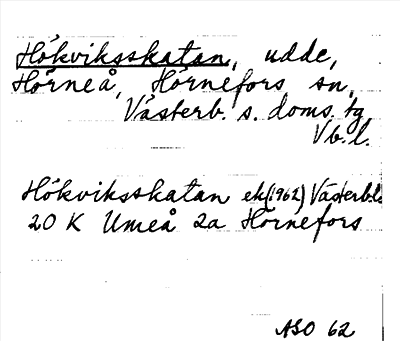 Hökviksskatan, udde,
Hörneå, Hörnefors sn,
Västerb. s. doms. tg
Vb. l.
Hökviksskatan ek (1962) Västerb.l.
20 K Umeå 2a Hörnefors
ASO 62